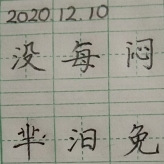 2020.12.10
没每闷
芈汨免